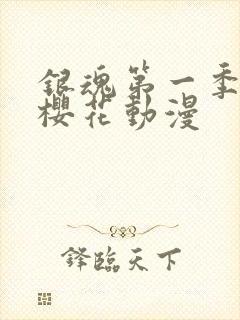 銀魂第一季
櫻花動漫
鋒臨天下